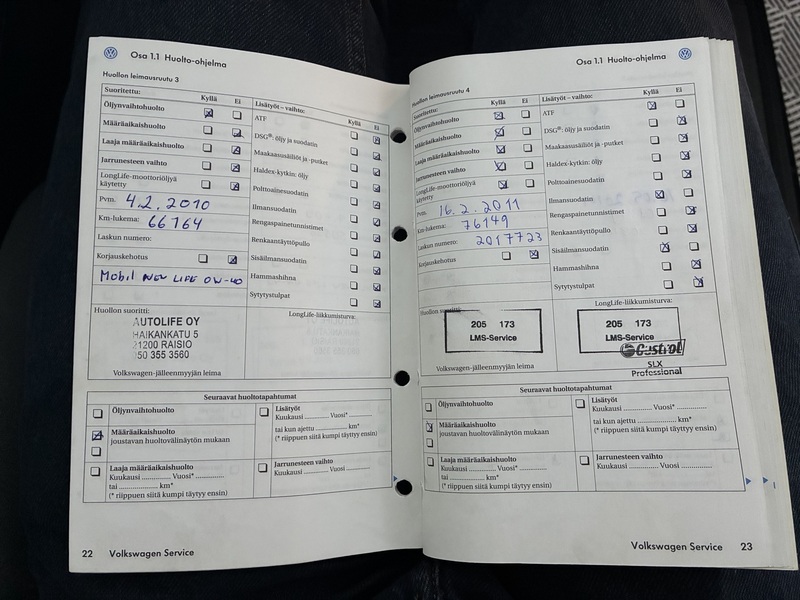 Osa 1.1 Huolto-ohjelma
Huollon leimausruutu 3
Suoritettu: Kyllä Ei
Öljynvaihtohuolto
Määräaikaishuolto
Laaja määräaikaishuolto
Jarrunesteen vaihto
LongLife-moottoriöljyä
käytetty
Pvm. 4.2.2010
Km-lukema: 66764
Laskun numero:
Korjauskehotus
Mobil NEW LIFE 0W-40
Lisätyöt – vaihto: Kyllä Ei
ATF
DSG®: öljy ja suodatin
Maakaasusäiliöt ja -putket
Haldex-kytkin: öljy
Polttoainesuodatin
Ilmansuodatin
Rengaspainetunnistimet
Renkaantäyttöpullo
Sisäilmansuodatin
Hammashihna
Sytytystulpat
Huollon suoritti:
AUTOLIFE OY
HAIKANKATU 5
21200 RAISIO
050 355 3560
Volkswagen-jälleenmyyjän leima
LongLife-liikkumisturva:
Seuraavat huoltotapahtumat
Öljynvaihtohuolto
Määräaikaishuolto
joustavan huoltovälinäytön mukaan
Laaja määräaikaishuolto
Kuukausi ............ Vuosi* ............
tai .................... km*
(* riippuen siitä kumpi täytyy ensin)
Lisätyöt
Kuukausi ............ Vuosi* ............
tai kun ajettu ............ km*
(* riippuen siitä kumpi täytyy ensin)
Jarrunesteen vaihto
Kuukausi ............ Vuosi ............
22 Volkswagen Service
Osa 1.1 Huolto-ohjelma
Huollon leimausruutu 4
Suoritettu: Kyllä Ei
Öljynvaihtohuolto
Määräaikaishuolto
Laaja määräaikaishuolto
Jarrunesteen vaihto
LongLife-moottoriöljyä
käytetty
Pvm. 16.2.2011
Km-lukema: 76149
Laskun numero: 2017723
Korjauskehotus
Lisätyöt – vaihto: Kyllä Ei
ATF
DSG®: öljy ja suodatin
Maakaasusäiliöt ja -putket
Haldex-kytkin: öljy
Polttoainesuodatin
Ilmansuodatin
Rengaspainetunnistimet
Renkaantäyttöpullo
Sisäilmansuodatin
Hammashihna
Sytytystulpat
Huollon suoritti:
205 173
LMS-Service
Volkswagen-jälleenmyyjän leima
LongLife-liikkumisturva:
205 173
LMS-Service
Castrol
SLX
Professional
Seuraavat huoltotapahtumat
Öljynvaihtohuolto
Määräaikaishuolto
joustavan huoltovälinäytön mukaan
Laaja määräaikaishuolto
Kuukausi ............ Vuosi* ............
tai .................... km*
(* riippuen siitä kumpi täytyy ensin)
Lisätyöt
Kuukausi ............ Vuosi* ............
tai kun ajettu ............ km*
(* riippuen siitä kumpi täytyy ensin)
Jarrunesteen vaihto
Kuukausi ............ Vuosi ............
Volkswagen Service 23